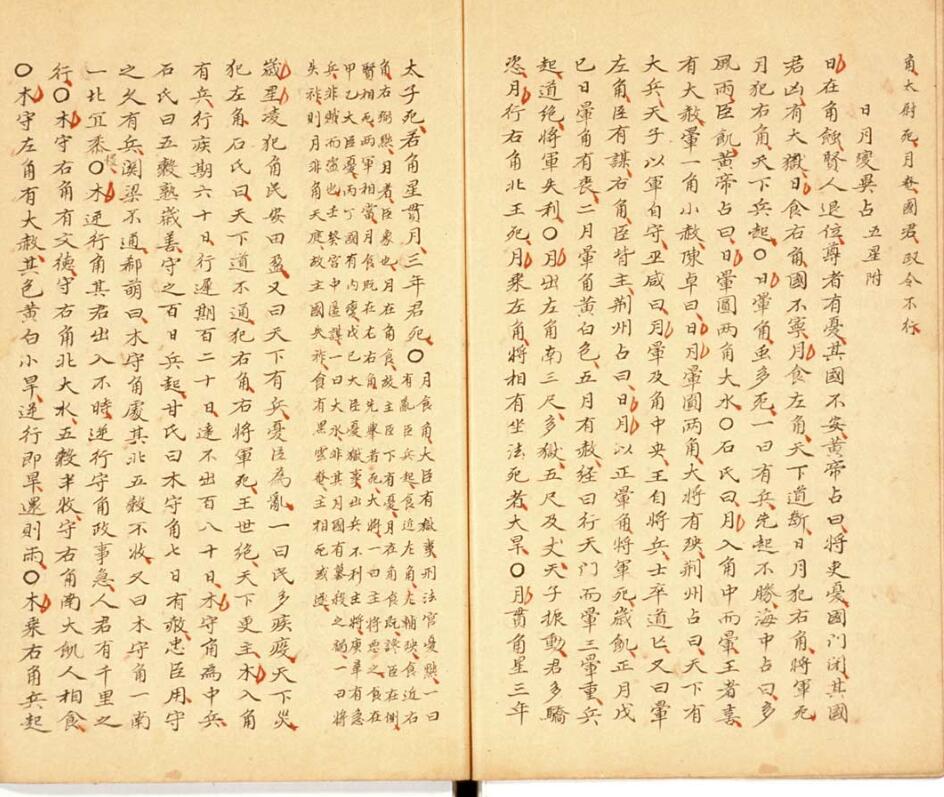 角太尉死月國君政令不行
日月變異占 五星附
日在角蝕賢人退位尊者有憂其國不安黄帝占曰將吏憂國門閉其國
君凶有大獄日食右角國不寧月食左角天下道斷日月犯右角將軍死
月犯右角天下兵起〇日暈角虫多死一曰有兵先起不勝海中占曰多
風雨臣飢黄帝占曰日暈圍兩角大水〇石氏曰月入角中而暈王者喜
有大赦暈一角小赦陳卓曰日月暈圍兩角大將有殃荊州占曰天下有
大兵天子以軍自守巫咸曰月暈及角中央王自將兵士卒道亡又曰暈
左角臣有謀右角臣背主荊州占曰日月以正暈角將軍死歳飢正月戊
已日暈角有喪二月暈角黄白色五月有赦経曰行天門而暈三暈重兵
起道絶將軍失利〇月出左角南三尺多獄五尺及丈天子振動君多驕
恣月行右角北王死月乗左角將相有坐法死者大旱〇月貫角星三年
太子死若角星貫月三年君死〇月食角大臣有獄事刑法官憂黜一曰
有亂臣兵起食近左角左輔殃食近右
角右弼黜月者臣象也月在角食故主臣下有憂月在角食既臣在側
賢相死兩軍相當月食既在左右角先擧者死大將一曰主將惡之食在
甲乙大臣憂丙丁國有内變戊已大臣憂獄事出兵不利主將庚辛有急
兵非賊而盗也壬癸宫中匿謀一曰大水非其月國有之禍一曰將
失祚則月非角天庭政主國失祚食有黒雲主相死或逃
歳星凌犯角民安田盈又曰天下有兵憂臣為亂一曰民多疾疫天下災
犯左角石氏曰天下道不通犯右角右將軍死王世絶天下更主木入角
有兵行疾期六十日行遲期百二十日遠不出百八十日木守角為中兵
石氏曰五穀熟歳善守之百日兵起甘氏曰木守角七日有赦忠臣用守
之久有兵関梁不通郗萌曰木守角處其北五穀不收又曰木守角一南
一北冝黍〇木逆行角其君出入不時逆行守角政事急人君有千里之
行〇木守右角有文徳守右角北大水五穀半收守右角南大飢人相食
〇木守左角有大赦其色黄白小旱逆行即旱還則雨〇木乗右角兵起